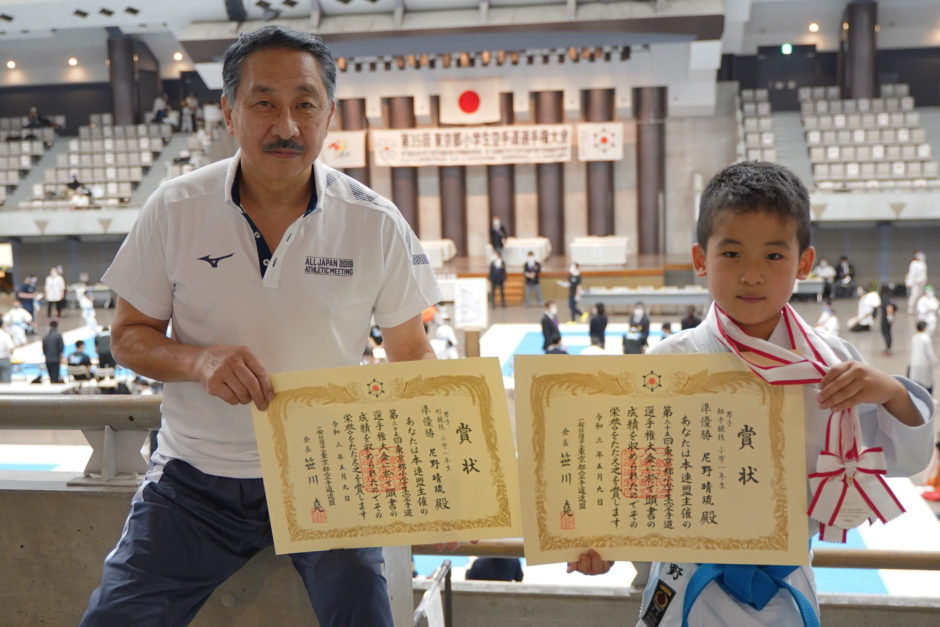 第35回 東京都小学生空手道選手権大会
ALL JAPAN 2018
ATHLETIC MEETING
賞状
男子
形競技 小学一年生
準優勝 尼野晴琉殿
あなたは本連盟主催の
第三十五回東京都小学生空手道
選手権大会に於て頭書の
成績を収められたのでその
栄誉をたたえ之を賞します
令和三年五月九日
会長 笹川堯
賞状
男子
組手競技 小学一年生
準優勝 尼野晴琉殿
あなたは本連盟主催の
第三十五回東京都小学生空手道
選手権大会に於て頭書の
成績を収められたのでその
栄誉をたたえ之を賞します
令和三年五月九日
一般社団法人東京都空手道連盟
会長 笹川堯
野